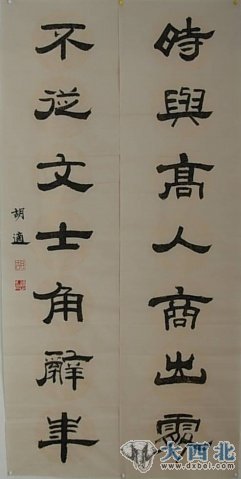 時與高人商出處
不從文士角辭華
胡適
大西北
www.dxbei.com